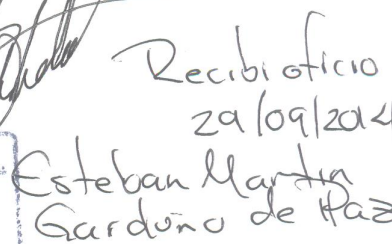 Recibi oficio
29/09/2014
Esteban Martin
Garduño de Paz